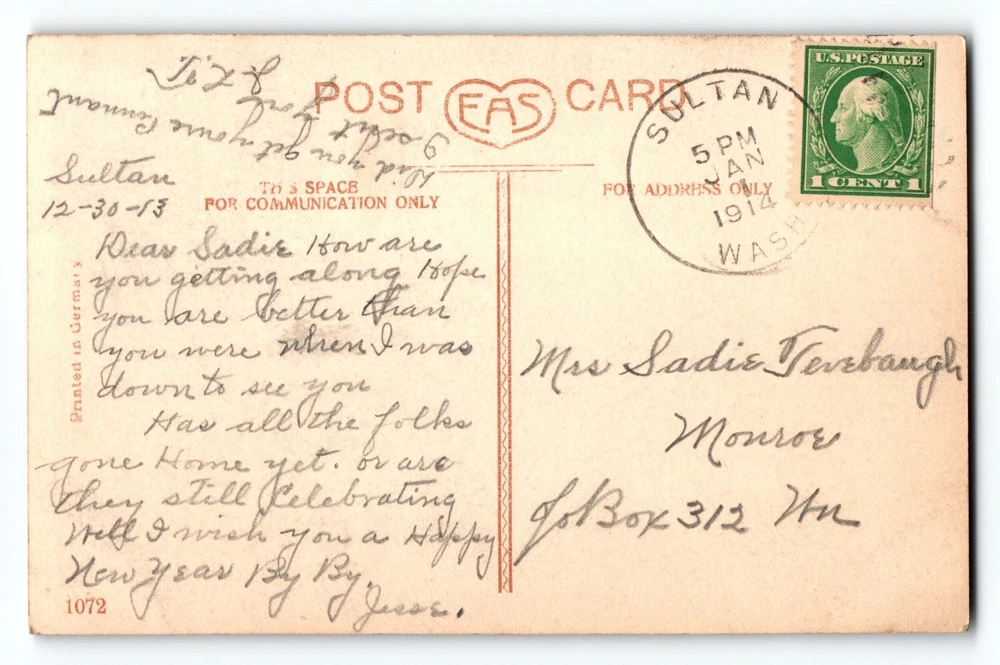 POST EAS CARD
THIS SPACE
FOR COMMUNICATION ONLY
FOR ADDRESS ONLY
SULTAN
5 PM
JAN
1
1914
WASH
U.S. POSTAGE
1 CENT 1
Sultan
12-30-13
Dear Sadie How are
you getting along Hope
you are better than
you were when I was
down to see you
Has all the folks
gone Home yet. or are
they still Celebrating
Well I wish you a Happy
New Year By By.
Jesse.
Did you get youre Pennant
I sent
Mrs Sadie Tevebaugh
Monroe
Box 312 Wn
Printed in Germany
1072